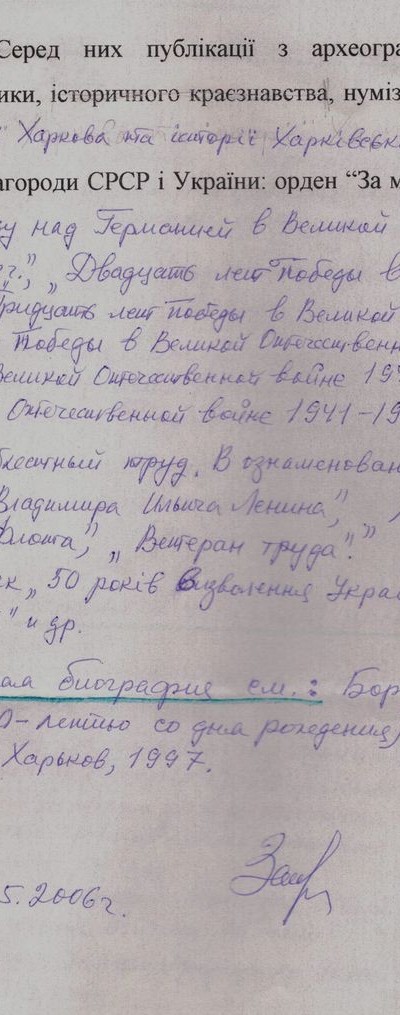 Серед них публікації з археогра
ики, історичного краєзнавства, нуміз
Харкова та історії Харківськ
агороди СРСР і України: орден “За м
у над Германией в Великой
г.", „Двадцать лет Победы в
Тридцать лет Победы в Великой
Победы в Великой Отечественн
Великой Отечественной войне 194
Отечественной войне 1941-19
блестный труд. В ознаменован
Владимира Ильича Ленина",
Флота", „Ветеран труда".
к „50 років визволення Украї
" и др.
ая биография см.: Бор
0-летию со дня рождения)
Харьков, 1997.
5.2006г.